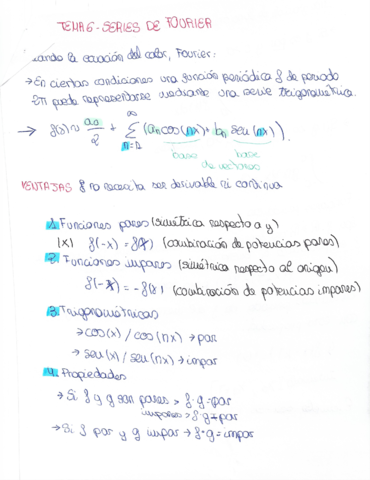 TEMA 6 - SERIES DE FOURIER
ando la ecuación del calor, Fourier:
→ En ciertas condiciones una función periódica f de periodo
2π puede representarse mediante una serie trigonométrica.
→ f(x) ~ a₀/2 + ∞ Σ n=1 (aₙ cos(nx) + bₙ sen(nx)).
base base
de vectores
VENTAJAS f no necesita ser derivable ni continua
1. Funciones pares (simétrica respecto a y)
|x| f(-x) = f(x) (combinación de potencias pares)
2. Funciones impares (simétrica respecto al origen)
f(-x) = -f(x) (combinación de potencias impares)
3. Trigonométricas
→ cos(x) / cos(nx) → par
→ sen(x) / sen(nx) → impar
4. Propiedades
→ Si f y g son pares > f·g = par
impares > f·g = par
→ Si f par y g impar → f·g = impar